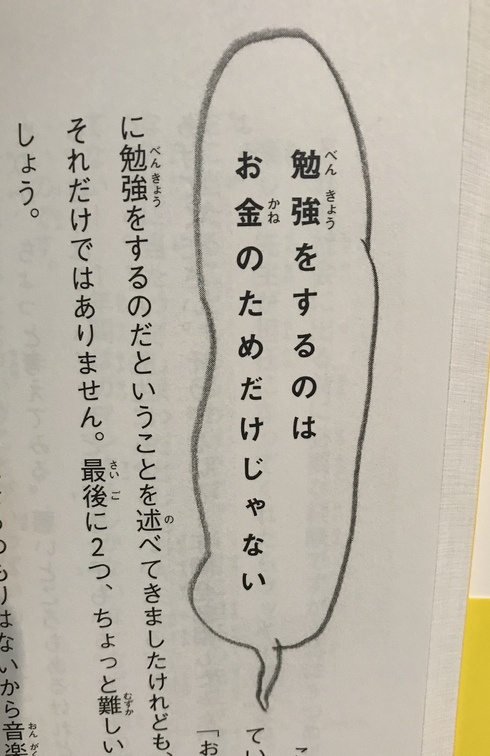 勉強をするのは
お金のためだけじゃない
に勉強をするのだということを述べてきましたけれども、
それだけではありません。最後に2つ、ちょっと難しい
しょう。
もりはないから音楽